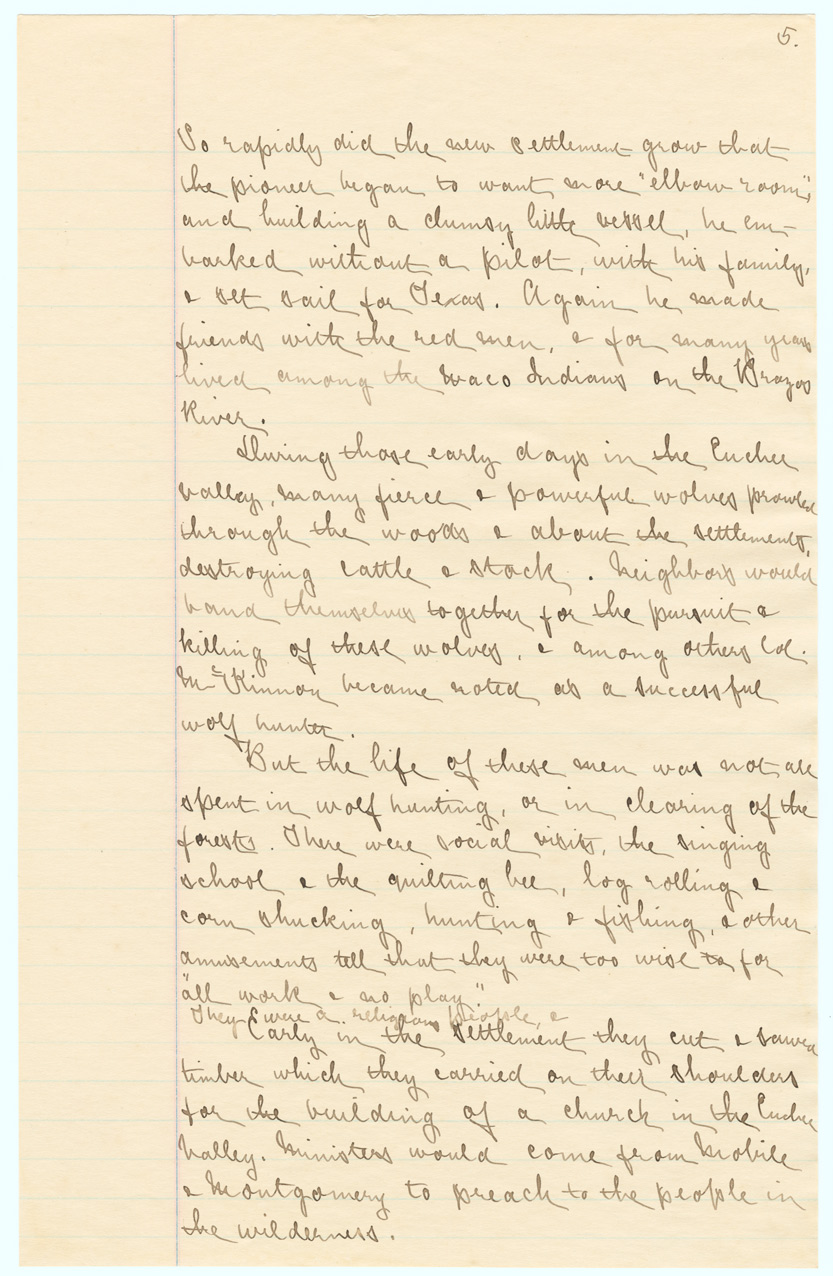 5.
So rapidly did the new settlement grow that
the pioneer began to want more "elbow room",
and building a clumsy little vessel, he em-
barked without a pilot, with his family,
& set sail for Texas. Again he made
friends with the red men, & for many years
lived among the Waco Indians on the Brazos
River.
During those early days in the Euchee
Valley, many fierce & powerful wolves prowled
through the woods & about the settlements,
destroying cattle & stock. Neighbors would
band themselves together for the pursuit &
killing of these wolves, & among others Col.
McKinnon became noted as a successful
wolf hunter.
But the life of these men was not all
spent in wolf hunting, or in clearing of the
forests. There were social visits, the singing
school & the quilting bee, log rolling &
corn shucking, hunting & fishing, & other
amusements tell that they were too wise to for
"all work & no play."
They were a religious people, &
Early in the settlement they cut & sawed
timber which they carried on their shoulders
for the building of a church in the Euchee
Valley. Ministers would come from Mobile
& Montgomery to preach to the people in
the wilderness.